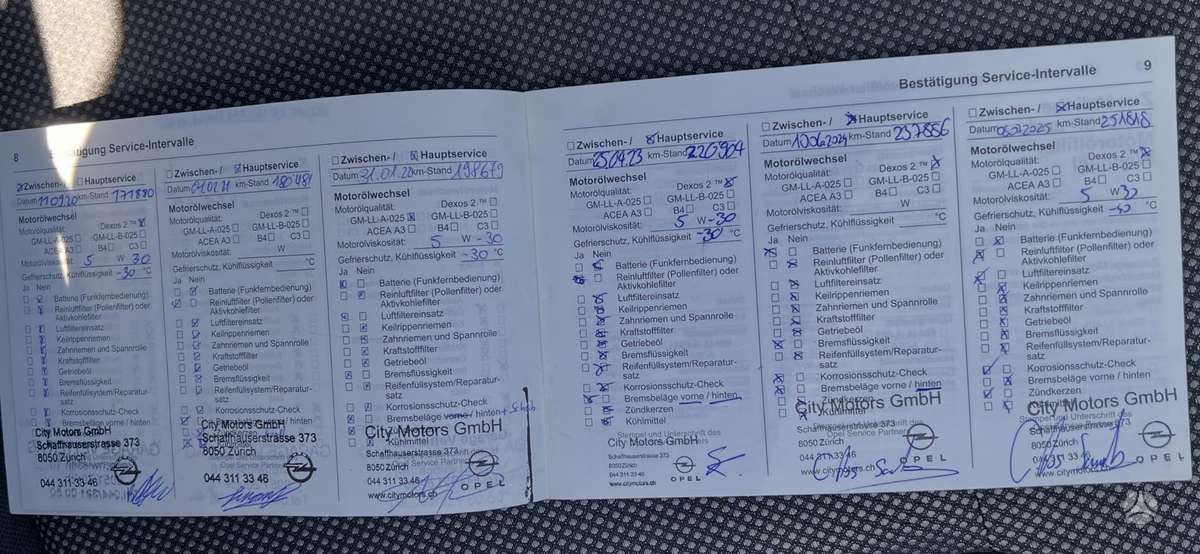 8
Bestätigung Service-Intervalle
Zwischen- / Hauptservice
Datum km-Stand
Motorölwechsel
Motorölqualität: Dexos 2 ™
GM-LL-A-025 GM-LL-B-025
ACEA A3 B4 C3
Motorölviskosität: 5 W 30
Gefrierschutz, Kühlflüssigkeit -30 °C
Ja Nein
Batterie (Funkfernbedienung)
Reinluftfilter (Pollenfilter) oder
Aktivkohlefilter
Luftfiltereinsatz
Keilrippenriemen
Zahnriemen und Spannrolle
Kraftstofffilter
Getriebeöl
Bremsflüssigkeit
Reifenfüllsystem/Reparatur-
satz
Korrosionsschutz-Check
Bremsbeläge vorne / hinten
City Motors GmbH
Schaffhauserstrasse 373
8050 Zürich
044 311 33 46
Zwischen- / Hauptservice
Datum km-Stand 180481
Motorölwechsel
Motorölqualität: Dexos 2 ™
GM-LL-A-025 GM-LL-B-025
ACEA A3 B4 C3
Motorölviskosität: W
Gefrierschutz, Kühlflüssigkeit °C
Ja Nein
Batterie (Funkfernbedienung)
Reinluftfilter (Pollenfilter) oder
Aktivkohlefilter
Luftfiltereinsatz
Keilrippenriemen
Zahnriemen und Spannrolle
Kraftstofffilter
Getriebeöl
Bremsflüssigkeit
Reifenfüllsystem/Reparatur-
satz
Korrosionsschutz-Check
City Motors GmbH
Schaffhauserstrasse 373
8050 Zürich
044 311 33 46
Zwischen- / Hauptservice
Datum 31.01.22 km-Stand 198679
Motorölwechsel
Motorölqualität: Dexos 2 ™
GM-LL-A-025 GM-LL-B-025
ACEA A3 B4 C3
Motorölviskosität: 5 W -30
Gefrierschutz, Kühlflüssigkeit -30 °C
Ja Nein
Batterie (Funkfernbedienung)
Reinluftfilter (Pollenfilter) oder
Aktivkohlefilter
Luftfiltereinsatz
Keilrippenriemen
Zahnriemen und Spannrolle
Kraftstofffilter
Getriebeöl
Bremsflüssigkeit
Reifenfüllsystem/Reparatur-
satz
Korrosionsschutz-Check
Bremsbeläge vorne / hinten
City Motors GmbH
Kühlmittel
Schaffhauserstrasse 373
8050 Zürich
044 311 33 46
www.citymotors.ch
OPEL
Bestätigung Service-Intervalle 9
Zwischen- / Hauptservice
Datum 25.04.23 km-Stand 220904
Motorölwechsel
Motorölqualität: Dexos 2 ™
GM-LL-A-025 GM-LL-B-025
ACEA A3 B4 C3
Motorölviskosität: 5 W -30
Gefrierschutz, Kühlflüssigkeit -30 °C
Ja Nein
Batterie (Funkfernbedienung)
Reinluftfilter (Pollenfilter) oder
Aktivkohlefilter
Luftfiltereinsatz
Keilrippenriemen
Zahnriemen und Spannrolle
Kraftstofffilter
Getriebeöl
Bremsflüssigkeit
Reifenfüllsystem/Reparatur-
satz
Korrosionsschutz-Check
Bremsbeläge vorne / hinten
Zündkerzen
Kühlmittel
City Motors GmbH
Schaffhauserstrasse 373
8050 Zürich
044 311 33 46
www.citymotors.ch
OPEL
Zwischen- / Hauptservice
Datum 10062024 km-Stand 237856
Motorölwechsel
Motorölqualität: Dexos 2 ™
GM-LL-A-025 GM-LL-B-025
ACEA A3 B4 C3
Motorölviskosität: W
Gefrierschutz, Kühlflüssigkeit °C
Ja Nein
Batterie (Funkfernbedienung)
Reinluftfilter (Pollenfilter) oder
Aktivkohlefilter
Luftfiltereinsatz
Keilrippenriemen
Zahnriemen und Spannrolle
Kraftstofffilter
Getriebeöl
Bremsflüssigkeit
Reifenfüllsystem/Reparatur-
satz
Korrosionsschutz-Check
Bremsbeläge vorne / hinten
Zündkerzen
City Motors GmbH
Kühlmittel
Schaffhauserstrasse 373
8050 Zürich
044 311 33 46
www.citymotors.ch
OPEL
Zwischen- / Hauptservice
Datum km-Stand 251818
Motorölwechsel
Motorölqualität: Dexos 2 ™
GM-LL-A-025 GM-LL-B-025
ACEA A3 B4 C3
Motorölviskosität: 5 W 30
Gefrierschutz, Kühlflüssigkeit °C
Ja Nein
Batterie (Funkfernbedienung)
Reinluftfilter (Pollenfilter) oder
Aktivkohlefilter
Luftfiltereinsatz
Keilrippenriemen
Zahnriemen und Spannrolle
Kraftstofffilter
Getriebeöl
Bremsflüssigkeit
Reifenfüllsystem/Reparatur-
satz
Korrosionsschutz-Check
Bremsbeläge vorne / hinten
Zündkerzen
City Motors GmbH
Schaffhauserstrasse 373
8050 Zürich
044 311 33 46
www.citymotors.ch
OPEL